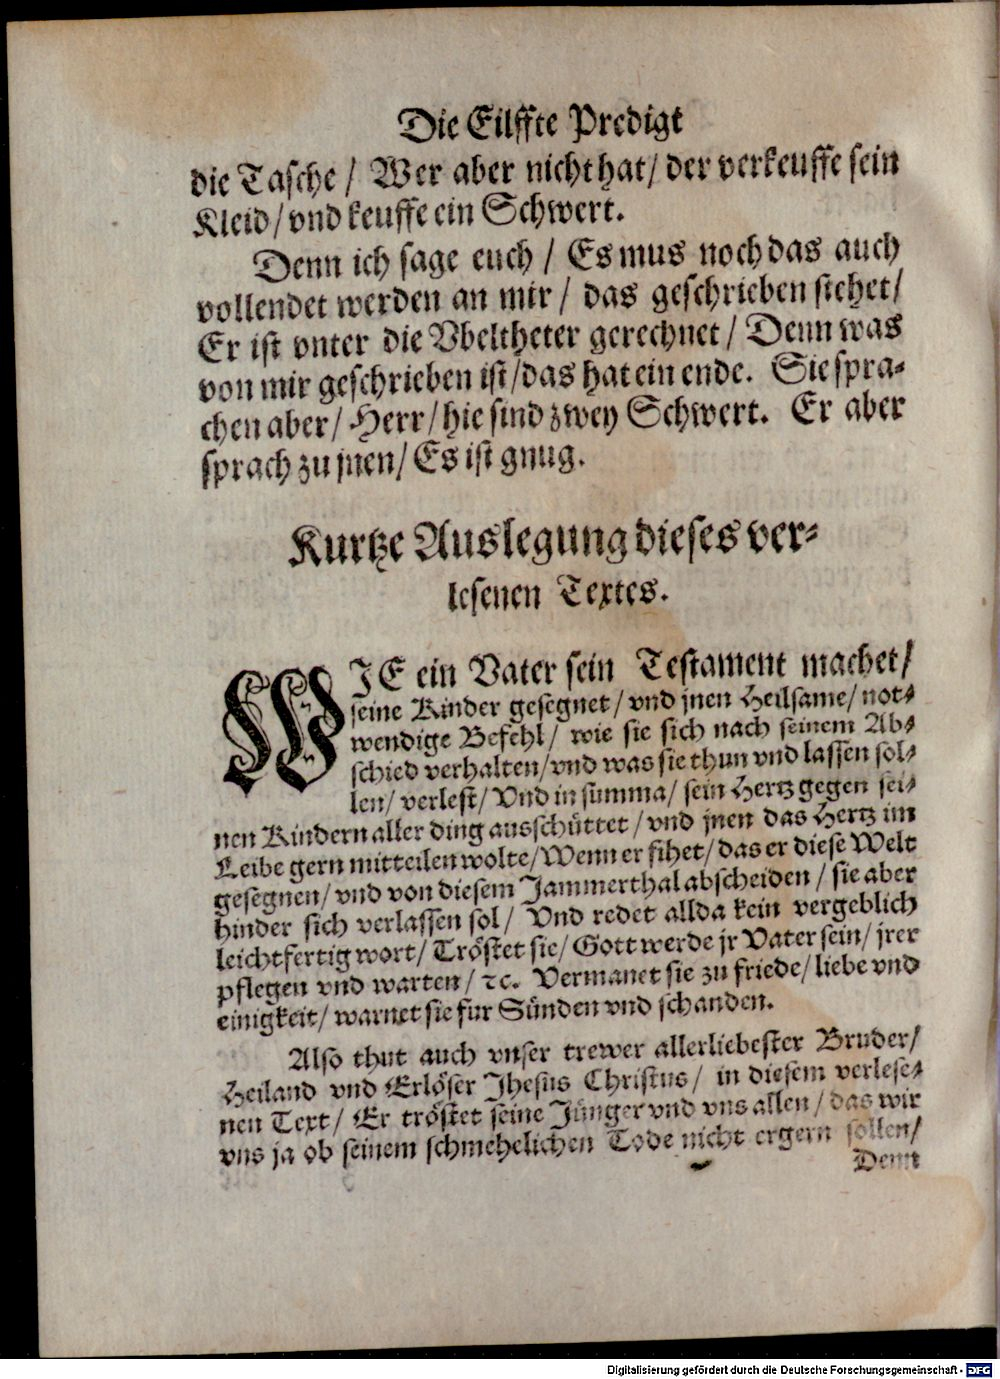 Die Eilffte Predigt
die Tasche / Wer aber nicht hat / der verkeuffe sein
Kleid / vnd keuffe ein Schwert.
Denn ich sage euch / Es mus noch das auch
vollendet werden an mir / das geschrieben stehet /
Er ist vnter die Vbeltheter gerechnet / Denn was
von mir geschrieben ist / das hat ein ende. Sie spra-
chen aber / Herr / hie sind zwey Schwert. Er aber
sprach zu jnen / Es ist gnug.
Kurtze Auslegung dieses ver-
lesenen Textes.
WJE ein Vater sein Testament machet /
seine Kinder gesegnet / vnd jnen Heilsame / not-
wendige Befehl / wie sie sich nach seinem Ab-
schied verhalten / vnd was sie thun vnd lassen sol-
len / verlest / Vnd in summa / sein Hertz gegen sei-
nen Kindern aller ding ausschüttet / vnd jnen das Hertz im
Leibe gern mitteilen wolte / Wenn er sihet / das er diese Welt
gesegnen / vnd von diesem Jammerthal abscheiden / sie aber
hinder sich verlassen sol / Vnd redet allda kein vergeblich
leichtfertig wort / Tröstet sie / Gott werde jr Vater sein / jrer
pflegen vnd warten / ꝛc. Vermanet sie zu friede / liebe vnd
einigkeit / warnet sie fur Sünden vnd schanden.
Also thut auch vnser trewer allerliebester Bruder /
Heiland vnd Erlöser Jhesus Christus / in diesem verlese-
nen Text / Er tröstet seine Jünger vnd vns allen / das wir
vns ja ob seinem schmehelichen Tode nicht ergern sollen /
Denn
Digitalisierung gefördert durch die Deutsche Forschungsgemeinschaft - DFG